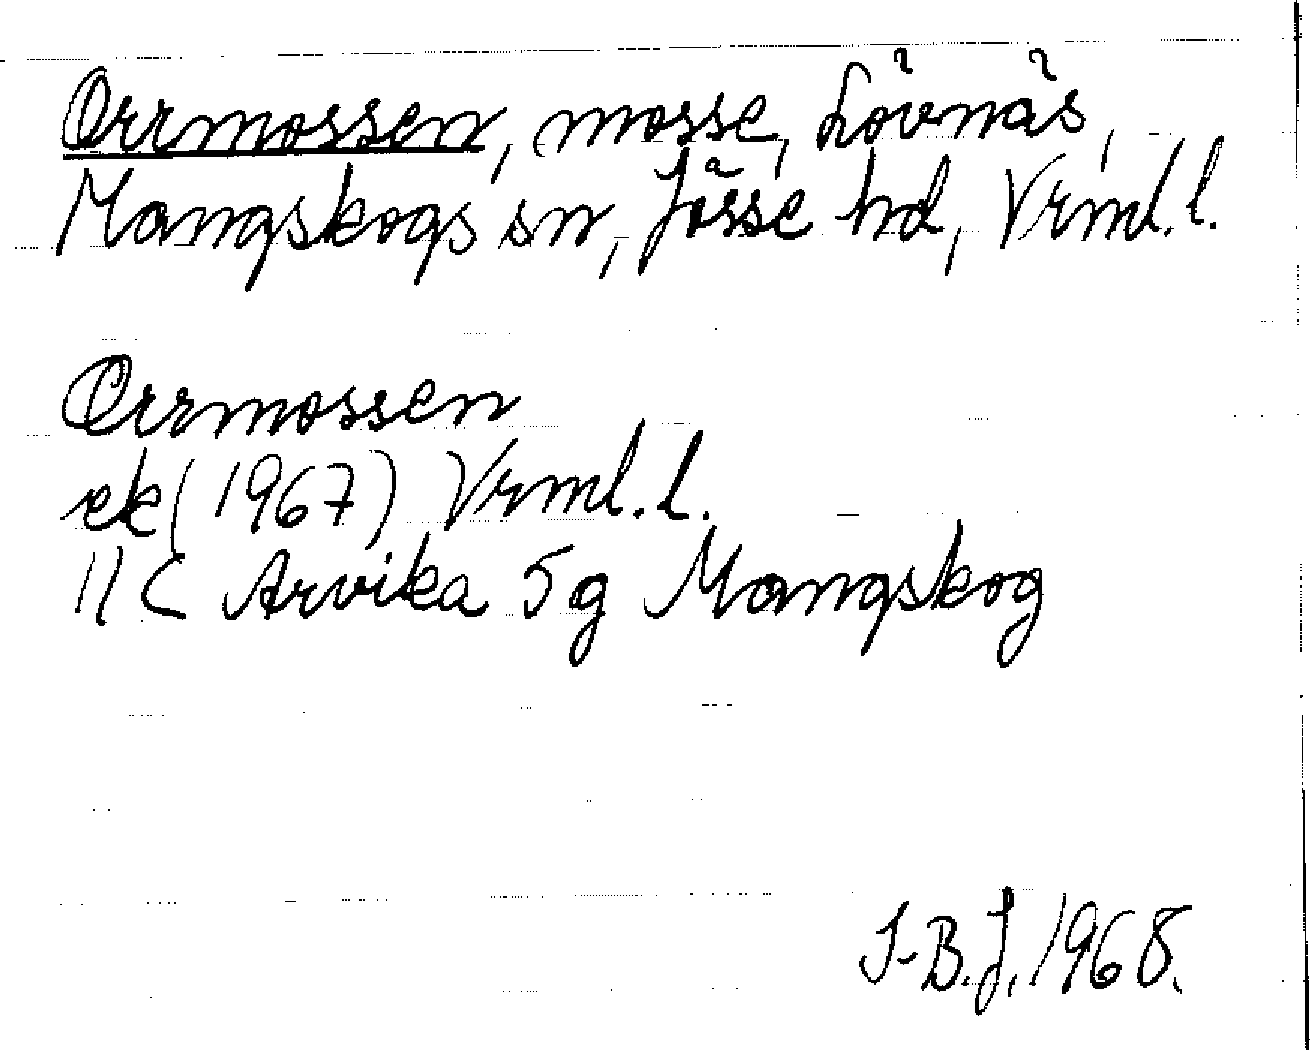 Orrmossen, mosse, Lövnäs,
Mangskogs sn, Jösse hd, Vrml.l.
Orrmossen
ek (1967) Vrml.l.
11C Arvika 5g Mangskog
I-B.J. 1968.